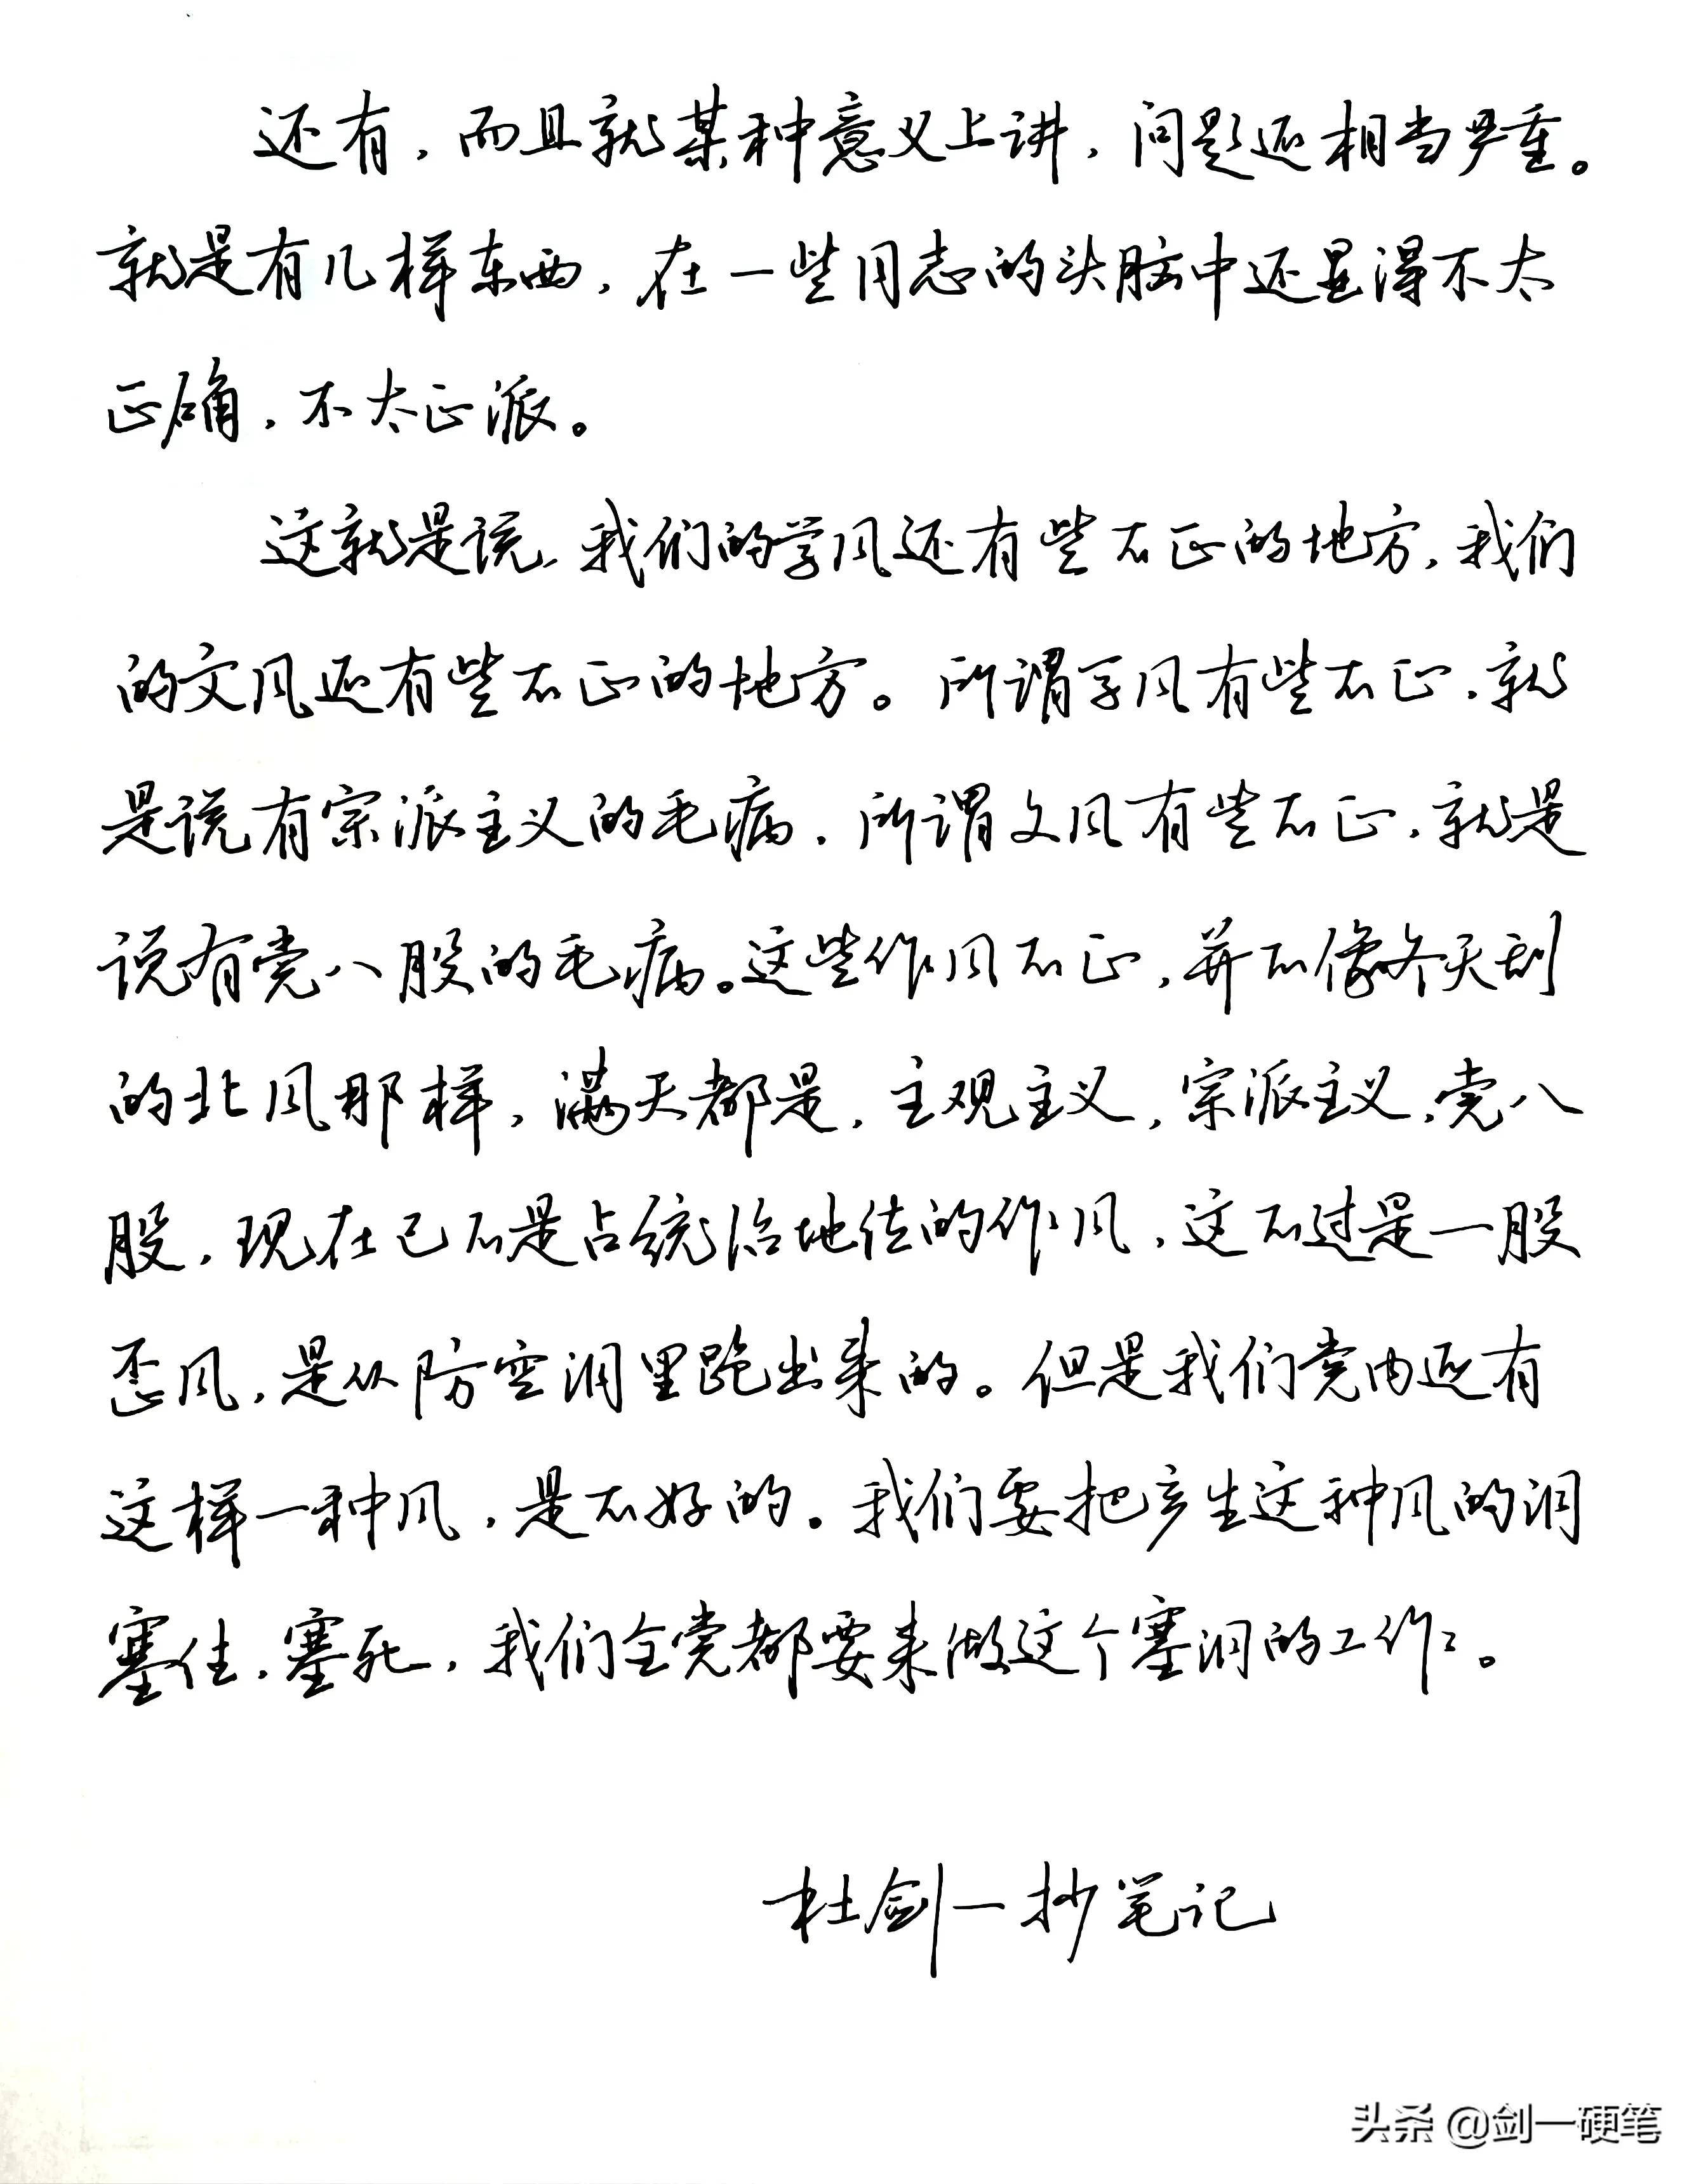 还有，而且就某种意义上讲，问题还相当严重。
就是有几样东西，在一些同志的头脑中还显得不太
正确，不太正派。
这就是说，我们的学风还有些不正的地方，我们
的文风还有些不正的地方。所谓学风有些不正，就
是说有宗派主义的毛病，所谓文风有些不正，就是
说有党八股的毛病。这些作风不正，并不像冬天刮
的北风那样，满天都是，主观主义，宗派主义，党八
股，现在已不是占统治地位的作风，这不过是一股
歪风，是从防空洞里跑出来的。但是我们党内还有
这样一种风，是不好的。我们要把产生这种风的洞
塞住，塞死，我们全党都要来做这个塞洞的工作。
杜剑一抄笔记
头条 @剑一硬笔